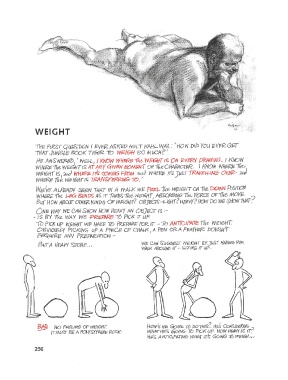 WEIGHT
THE FIRST QUESTION I EVER ASKED MILT KAHL WAS: 'HOW DID YOU EVER GET
THAT JUNGLE BOOK TIGER TO WEIGH SO MUCH?'
HE ANSWERED, 'WELL, I KNOW WHERE THE WEIGHT IS ON EVERY DRAWING. I KNOW
WHERE THE WEIGHT IS AT ANY GIVEN MOMENT ON THE CHARACTER. I KNOW WHERE THE
WEIGHT IS, AND WHERE IT'S COMING FROM AND WHERE IT'S JUST TRAVELLING OVER - AND
WHERE THE WEIGHT IS TRANSFERRING TO.'
WE'VE ALREADY SEEN THAT IN A WALK WE FEEL THE WEIGHT ON THE DOWN POSITION
WHERE THE LEG BENDS AS IT TAKES THE WEIGHT, ABSORBING THE FORCE OF THE MOVE.
BUT HOW ABOUT OTHER KINDS OF WEIGHT? OBJECTS - LIGHT? HEAVY? HOW DO WE SHOW THAT?
ONE WAY WE CAN SHOW HOW HEAVY AN OBJECT IS -
- IS BY THE WAY WE PREPARE TO PICK IT UP.
TO PICK UP WEIGHT WE HAVE TO PREPARE FOR IT - TO ANTICIPATE THE WEIGHT.
OBVIOUSLY PICKING UP A PIECE OF CHALK, A PEN OR A FEATHER DOESN'T
REQUIRE ANY PREPARATION -
BUT A HEAVY STONE...
WE CAN SUGGEST WEIGHT BY JUST HAVING HIM
WALK AROUND IT - SIZING IT UP.
BAD NO FEELING OF WEIGHT
IT MUST BE A POLYSTYRENE ROCK
HOW'S HE GOING TO DO THIS? HE'S CONSIDERING
WHAT HE'S GOING TO PICK UP. HOW HEAVY IS IT?
HE'S ANTICIPATING WHAT IT'S GOING TO MEAN...
256